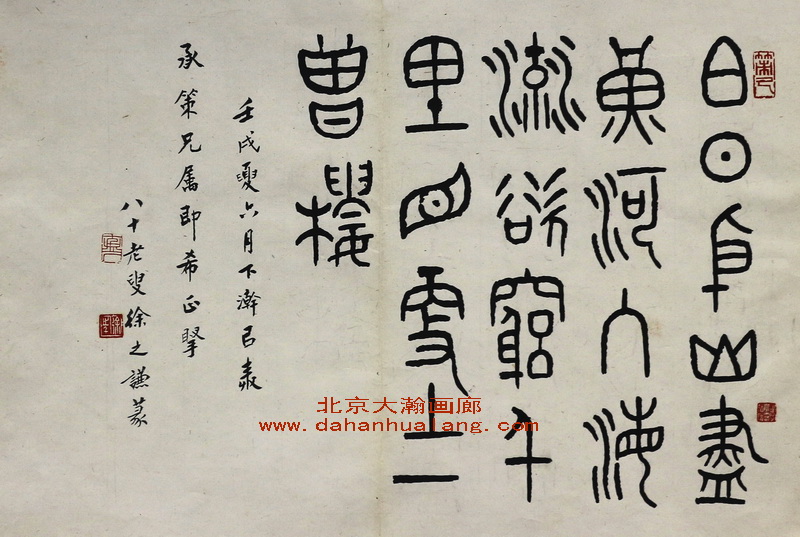 白日依山盡
黃河入海
流欲窮千
里目更上一
曾樓
壬戌夏六月下澣㠯奉
承策兄属即希正
八十老叟徐之謙篆
北京大瀚画廊
www.dahanhualang.com